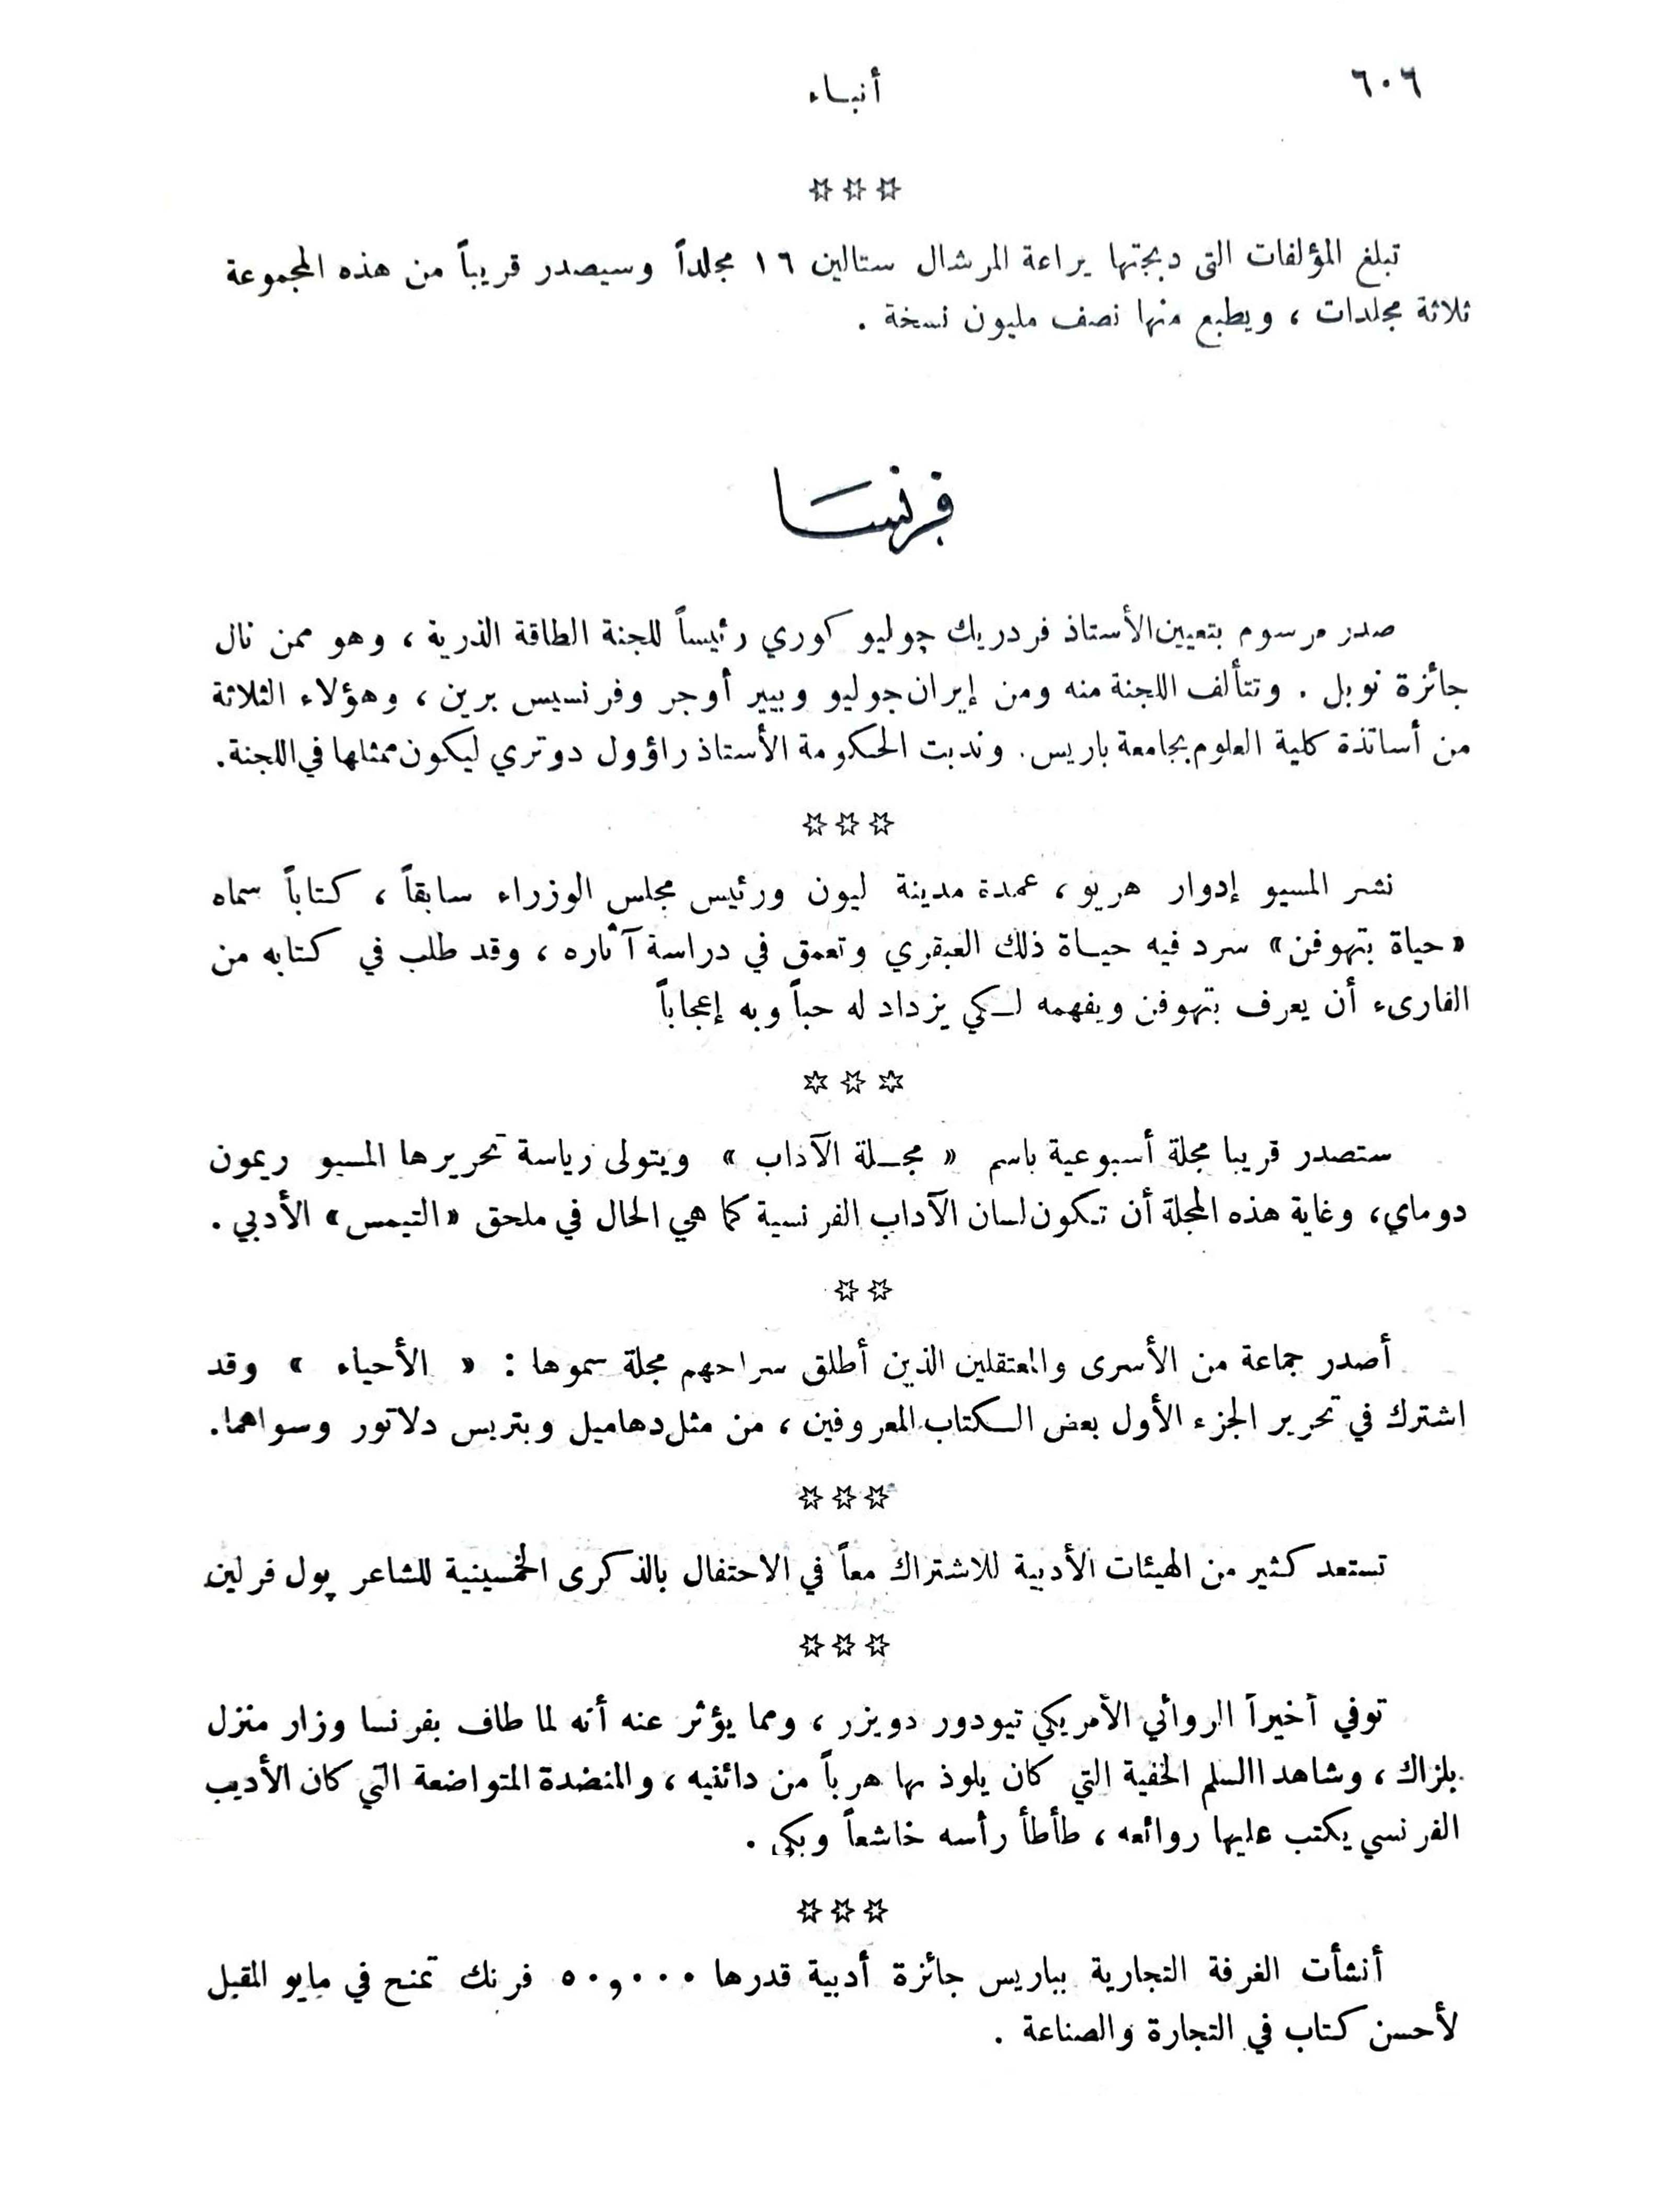 ٦٠٦
أنباء
✡ ✡ ✡
تبلغ المؤلفات التى دبجتها يراعة المرشال ستالين ١٦ مجلداً وسيصدر قريباً من هذه المجموعة
ثلاثة مجلدات ، ويطبع منها نصف مليون نسخة .
فرنسا
صدر مرسوم بتعيين الأستاذ فردريك چوليو كوري رئيساً للجنة الطاقة الذرية ، وهو ممن نال
جائزة نوبل . وتتألف اللجنة منه ومن إيران جوليو وبيير أوجر وفرنسيس برين ، وهؤلاء الثلاثة
من أساتذة كلية العلوم بجامعة باريس . وندبت الحكومة الأستاذ راؤول دوتري ليكون ممثلها في اللجنة .
✡ ✡ ✡
نشر المسيو إدوار هريو ، عمدة مدينة ليون ورئيس مجلس الوزراء سابقاً ، كتاباً سماه
« حياة بتهوفن » سرد فيه حياة ذلك العبقري وتعمق في دراسة آثاره ، وقد طلب في كتابه من
القارىء أن يعرف بتهوفن ويفهمه لكي يزداد له حباً وبه إعجاباً
✡ ✡ ✡
ستصدر قريبا مجلة أسبوعية باسم « مجلة الآداب » ويتولى رياسة تحريرها المسيو ريمون
دوماي ، وغاية هذه المجلة أن تكون لسان الآداب الفرنسية كما هي الحال في ملحق « التيمس » الأدبي .
✡ ✡
أصدر جماعة من الأسرى والمعتقلين الذين أطلق سراحهم مجلة سموها : « الأحياء » وقد
اشترك في تحرير الجزء الأول بعض الكتاب المعروفين ، من مثل دهاميل وبتريس دلاتور وسواهما .
✡ ✡ ✡
تستعد كثير من الهيئات الأدبية للاشتراك معاً في الاحتفال بالذكرى الخمسينية للشاعر پول فرلين
✡ ✡ ✡
توفي أخيراً الروائي الأمريكي تيودور دويزر ، ومما يؤثر عنه أنه لما طاف بفرنسا وزار منزل
بلزاك ، وشاهد االسلم الخفية التي كان يلوذ بها هرباً من دائنيه ، والمنضدة المتواضعة التي كان الأديب
الفرنسي يكتب عليها روائعه ، طأطأ رأسه خاشعاً وبكى .
✡ ✡ ✡
أنشأت الغرفة التجارية بباريس جائزة أدبية قدرها ٥٠,٠٠٠ فرنك تمنح في مايو المقبل
لأحسن كتاب في التجارة والصناعة .